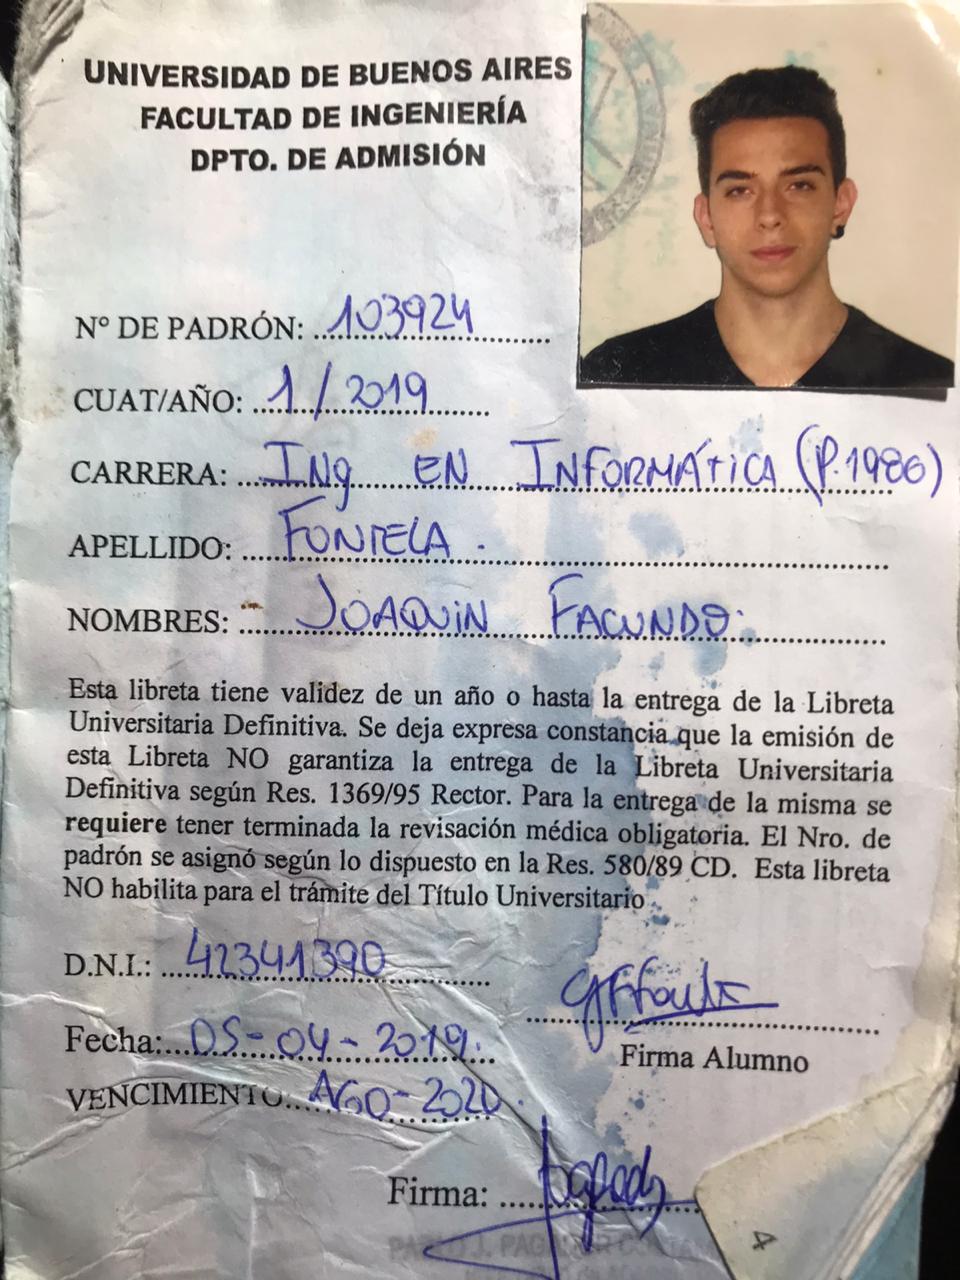 UNIVERSIDAD DE BUENOS AIRES
FACULTAD DE INGENIERÍA
DPTO. DE ADMISIÓN
Nº DE PADRÓN: 103924
CUAT/AÑO: 1/2019
CARRERA: ING EN INFORMÁTICA (P.1986)
APELLIDO: FONTELA.
NOMBRES: JOAQUIN FACUNDO.
Esta libreta tiene validez de un año o hasta la entrega de la Libreta
Universitaria Definitiva. Se deja expresa constancia que la emisión de
esta Libreta NO garantiza la entrega de la Libreta Universitaria
Definitiva según Res. 1369/95 Rector. Para la entrega de la misma se
requiere tener terminada la revisación médica obligatoria. El Nro. de
padrón se asignó según lo dispuesto en la Res. 580/89 CD. Esta libreta
NO habilita para el trámite del Título Universitario
D.N.I.: 42341390
Fecha: 05-04-2019.
Firma Alumno
VENCIMIENTO: AGO-2020.
Firma: